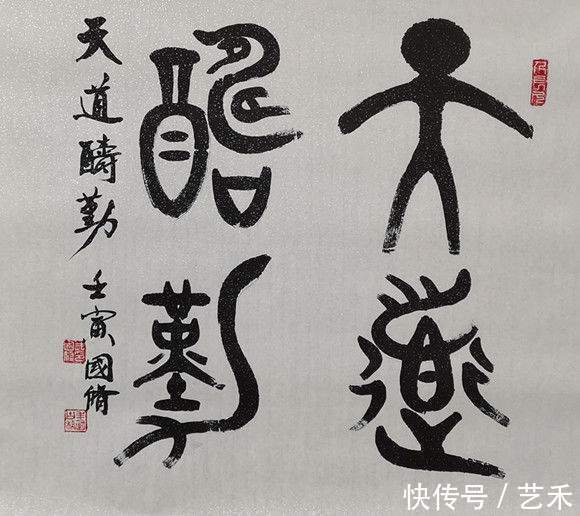 天道
酬勤
天道酬勤 壬寅國脩
快传号 / 艺禾